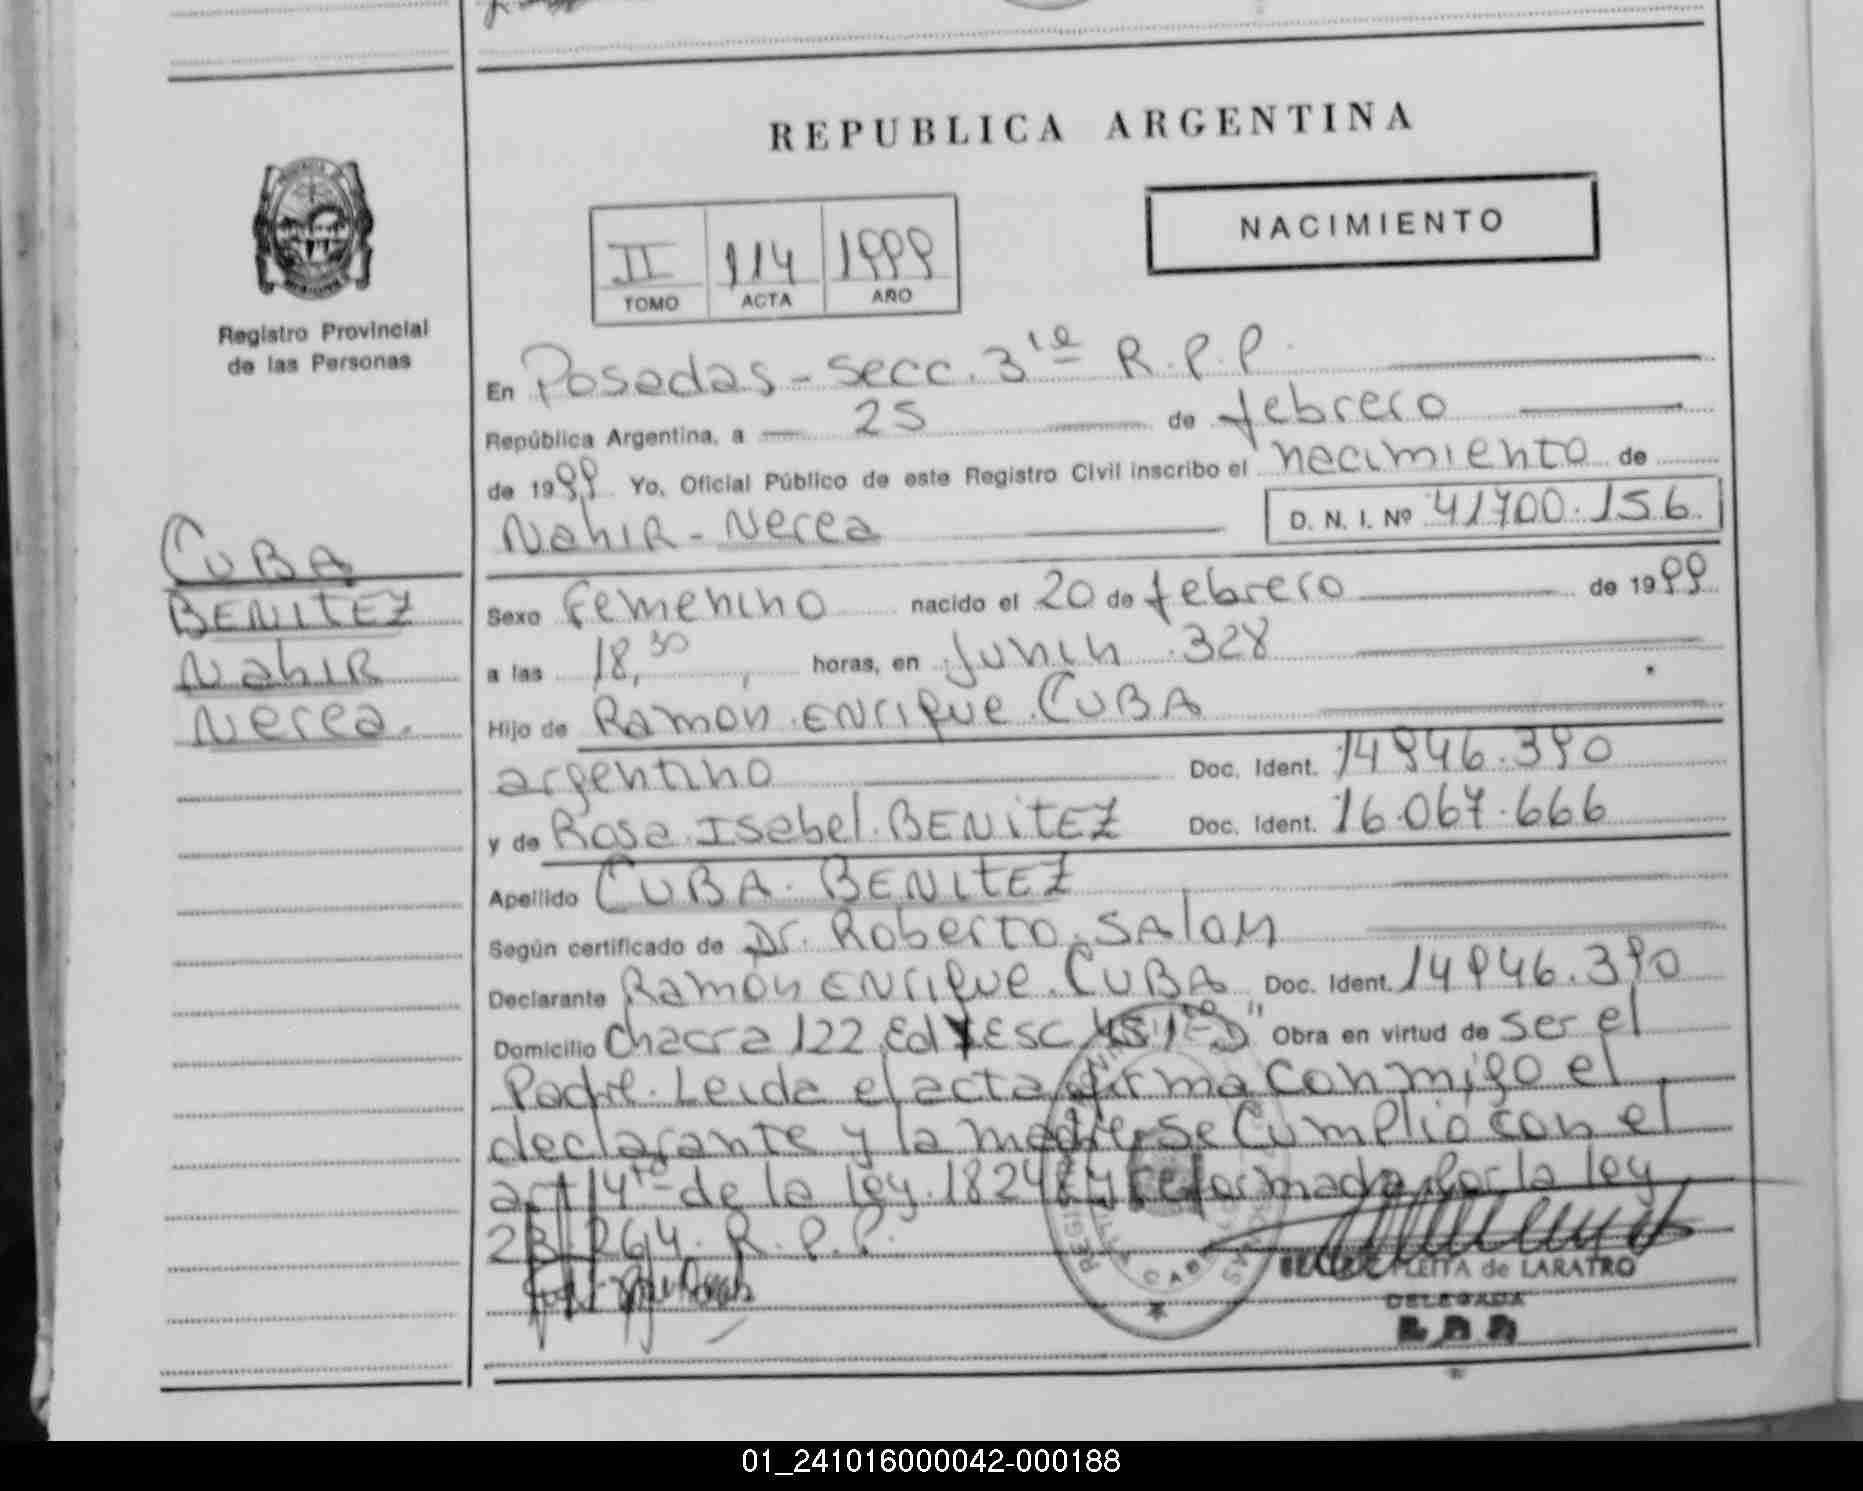 REPUBLICA ARGENTINA
NACIMIENTO
II 114 1999
TOMO ACTA AÑO
Registro Provincial
de las Personas
En Posadas - Secc. 3ra R.P.P.
República Argentina, a 25 de febrero
de 1999 Yo, Oficial Público de este Registro Civil inscribo el nacimiento de
Nahir - Nerea D. N. I. Nº 41700.156.
CUBA
BENITEZ
Nahir
Nerea.
Sexo Femenino nacido el 20 de febrero de 1999
a las 18,30 horas, en Junin 328
Hijo de Ramon Enrique CUBA
argentino Doc. Ident. 14946.390
y de Rosa Isabel BENITEZ Doc. Ident. 16.067.666
Apellido CUBA BENITEZ
Según certificado de Dr. Roberto Salom
Declarante Ramón Enrique CUBA Doc. Ident. 14946.390
Domicilio Chacra 122 Ed Esc "D" Obra en virtud de ser el
Padre. Leida el acta firma conmigo el
declarante y la madre se cumplió con el
art 4to de la ley 18248 y reformada por la ley
23.264. R.P.P.
PLEITA de LARATRO
DELEGADA
01_241016000042-000188